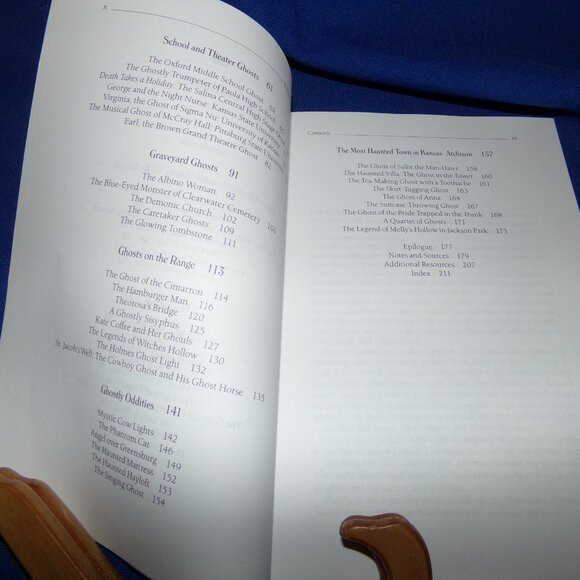 x
School and Theater Ghosts 61
The Oxford Middle School Ghost 62
The Ghostly Trumpeter of Paola High School
Death Takes a Holiday: The Salina Central High Stage Ghost
George and the Night Nurse: Kansas State University
Virginia, the Ghost of Sigma Nu: University of Kansas
The Musical Ghost of McCray Hall: Pittsburg State University
Earl, the Brown Grand Theatre Ghost 82
Graveyard Ghosts 91
The Albino Woman 92
The Blue-Eyed Monster of Clearwater Cemetery 100
The Demonic Church 102
The Caretaker Ghosts 109
The Glowing Tombstone 111
Ghosts on the Range 113
The Ghost of the Cimarron 114
The Hamburger Man 116
Theorosa's Bridge 120
A Ghostly Sisyphus 125
Kate Coffee and Her Ghouls 127
The Legends of Witches Hollow 130
The Holmes Ghost Light 132
St. Jacob's Well: The Cowboy Ghost and His Ghost Horse 135
Ghostly Oddities 141
Mystic Cow Lights 142
The Phantom Cat 146
Angel over Greensburg 149
The Haunted Mattress 152
The Haunted Hayloft 153
The Singing Ghost 154
Contents xi
The Most Haunted Town in Kansas: Atchison 157
The Ghost of Sallie the Man-Hater 158
The Haunted Villa: The Ghost in the Tower 160
The Tea-Making Ghost with a Toothache 161
The Skirt-Tugging Ghost 163
The Ghost of Anna 164
The Suitcase-Throwing Ghost 167
The Ghost of the Bride Trapped in the Trunk 168
A Quartet of Ghosts 171
The Legend of Molly's Hollow in Jackson Park 173
Epilogue 177
Notes and Sources 179
Additional Resources 207
Index 211